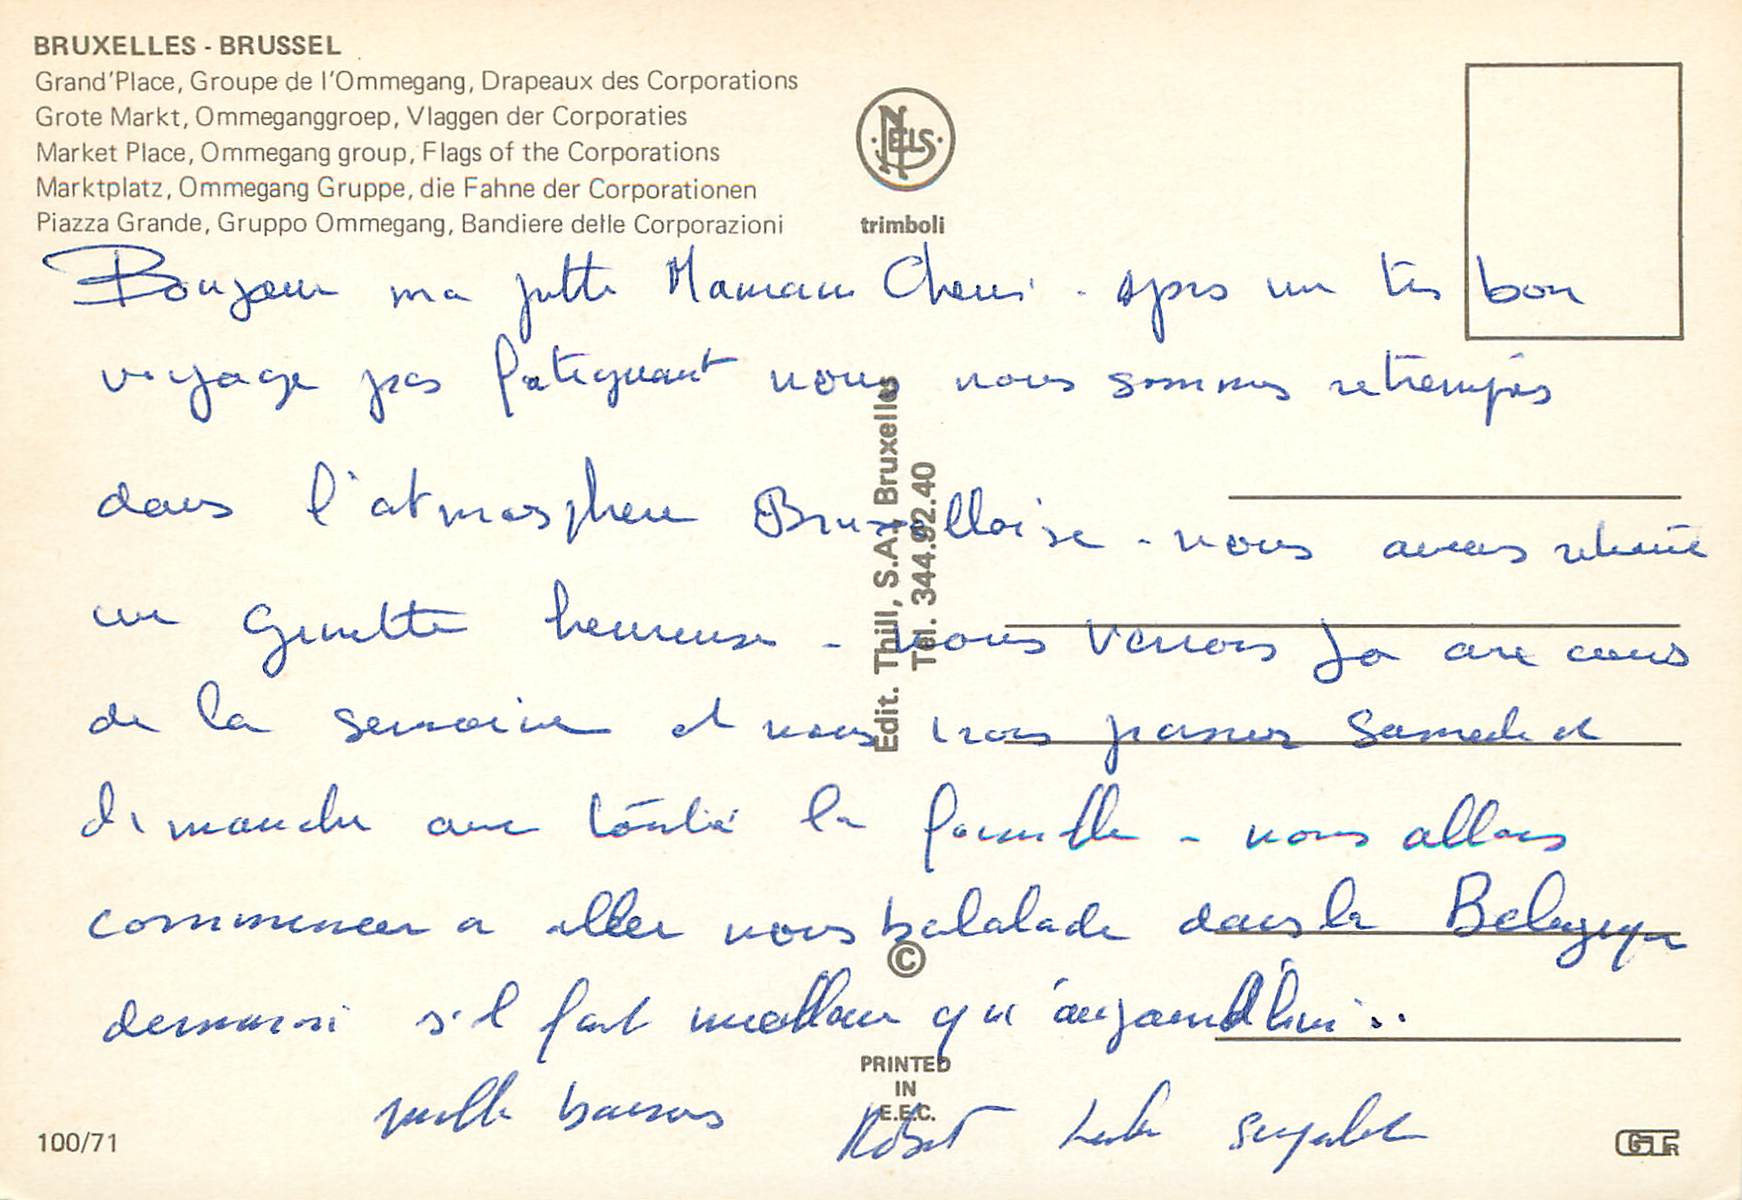 BRUXELLES - BRUSSEL
Grand'Place, Groupe de l'Ommegang, Drapeaux des Corporations
Grote Markt, Ommeganggroep, Vlaggen der Corporaties
Market Place, Ommegang group, Flags of the Corporations
Marktplatz, Ommegang Gruppe, die Fahne der Corporationen
Piazza Grande, Gruppo Ommegang, Bandiere delle Corporazioni
NELS
trimboli
Bonjour ma petite Maman Cherie - Apres un tres bon
voyage pas fatiguant nous nous sommes retrempés
dans l'atmosphere Bruxelloise - nous avons retrouvé
une Ginette heureuse - nous verrons Jo au cours
de la semaine et nous irons passer Samedi et
dimanche avec toute la famille - nous allons
commencer a aller nous balalade dans la Belgique
demain s'il fait meilleur qu'aujourd'hui..
mille baisers Robert
Edit. Thill, S.A., Bruxelles
Tél. 344.92.40
©
PRINTED
IN
E.E.C.
100/71